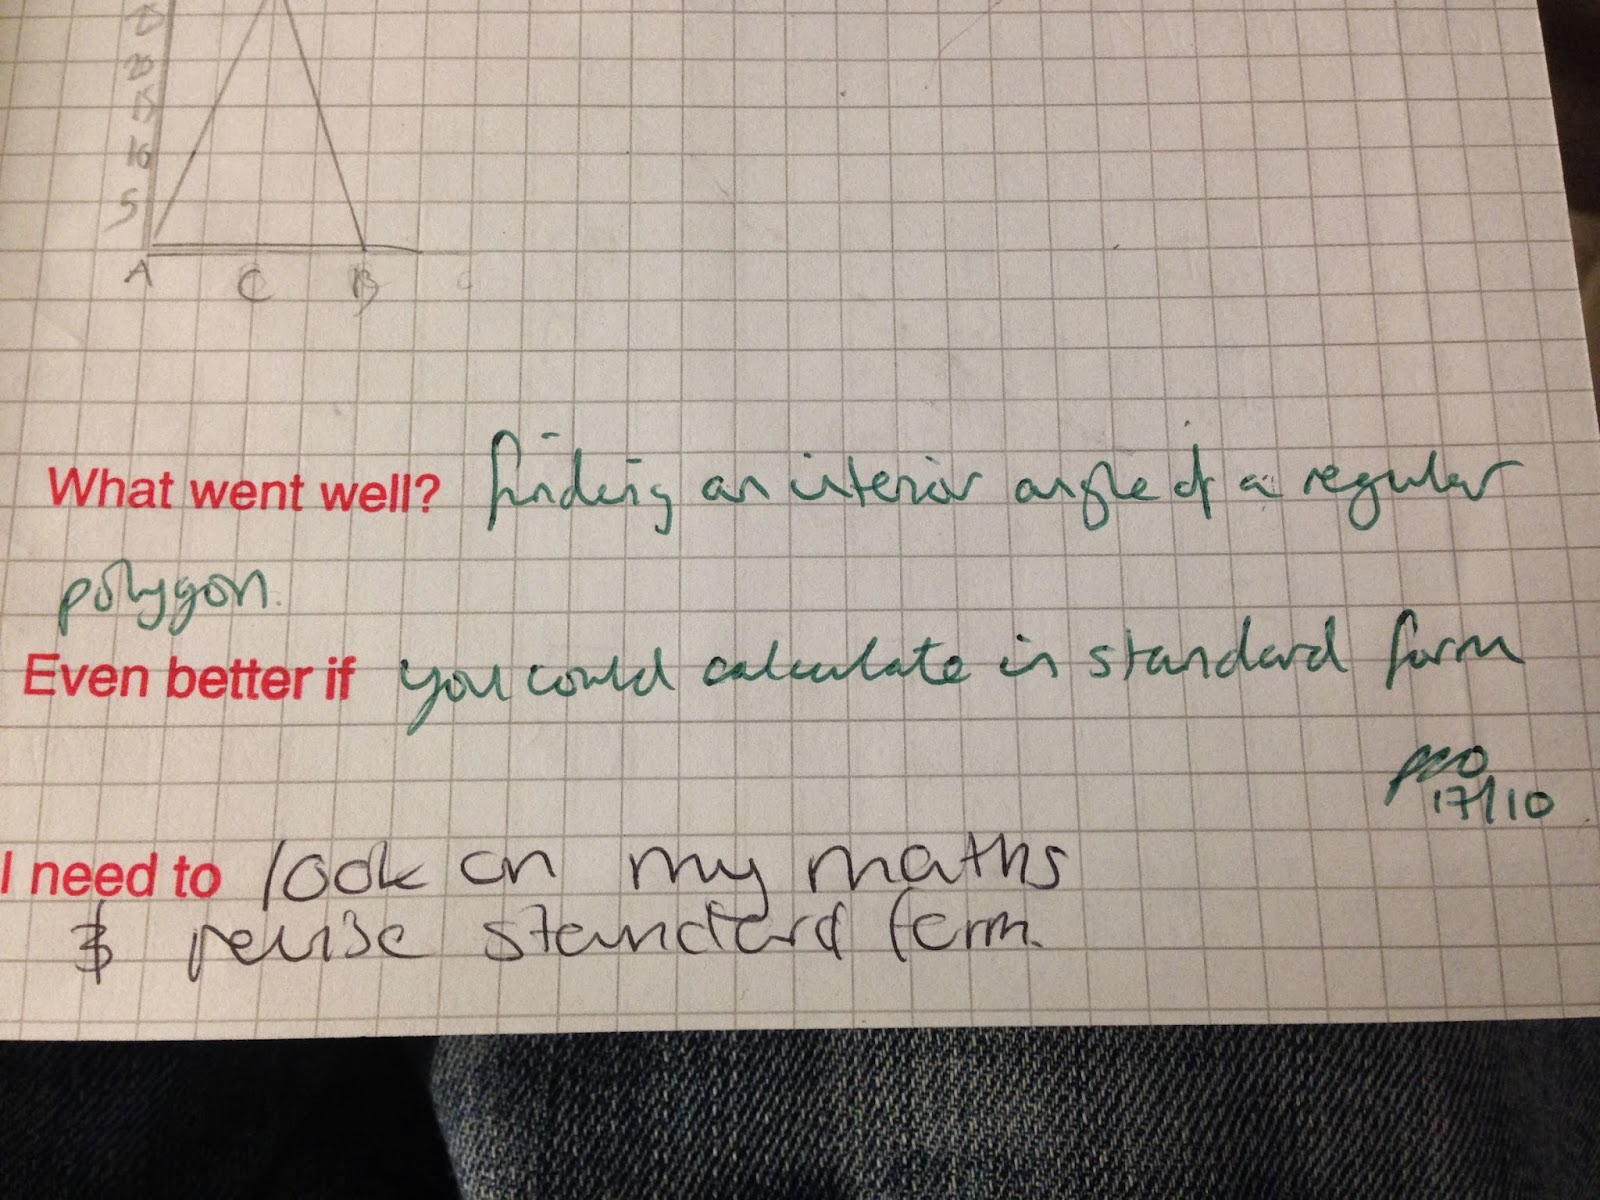 20
15
10
5
A C B C
What went well? finding an interior angle of a regular
polygon.
Even better if you could calculate in standard form
17/10
I need to look on my maths
& revise standard form.